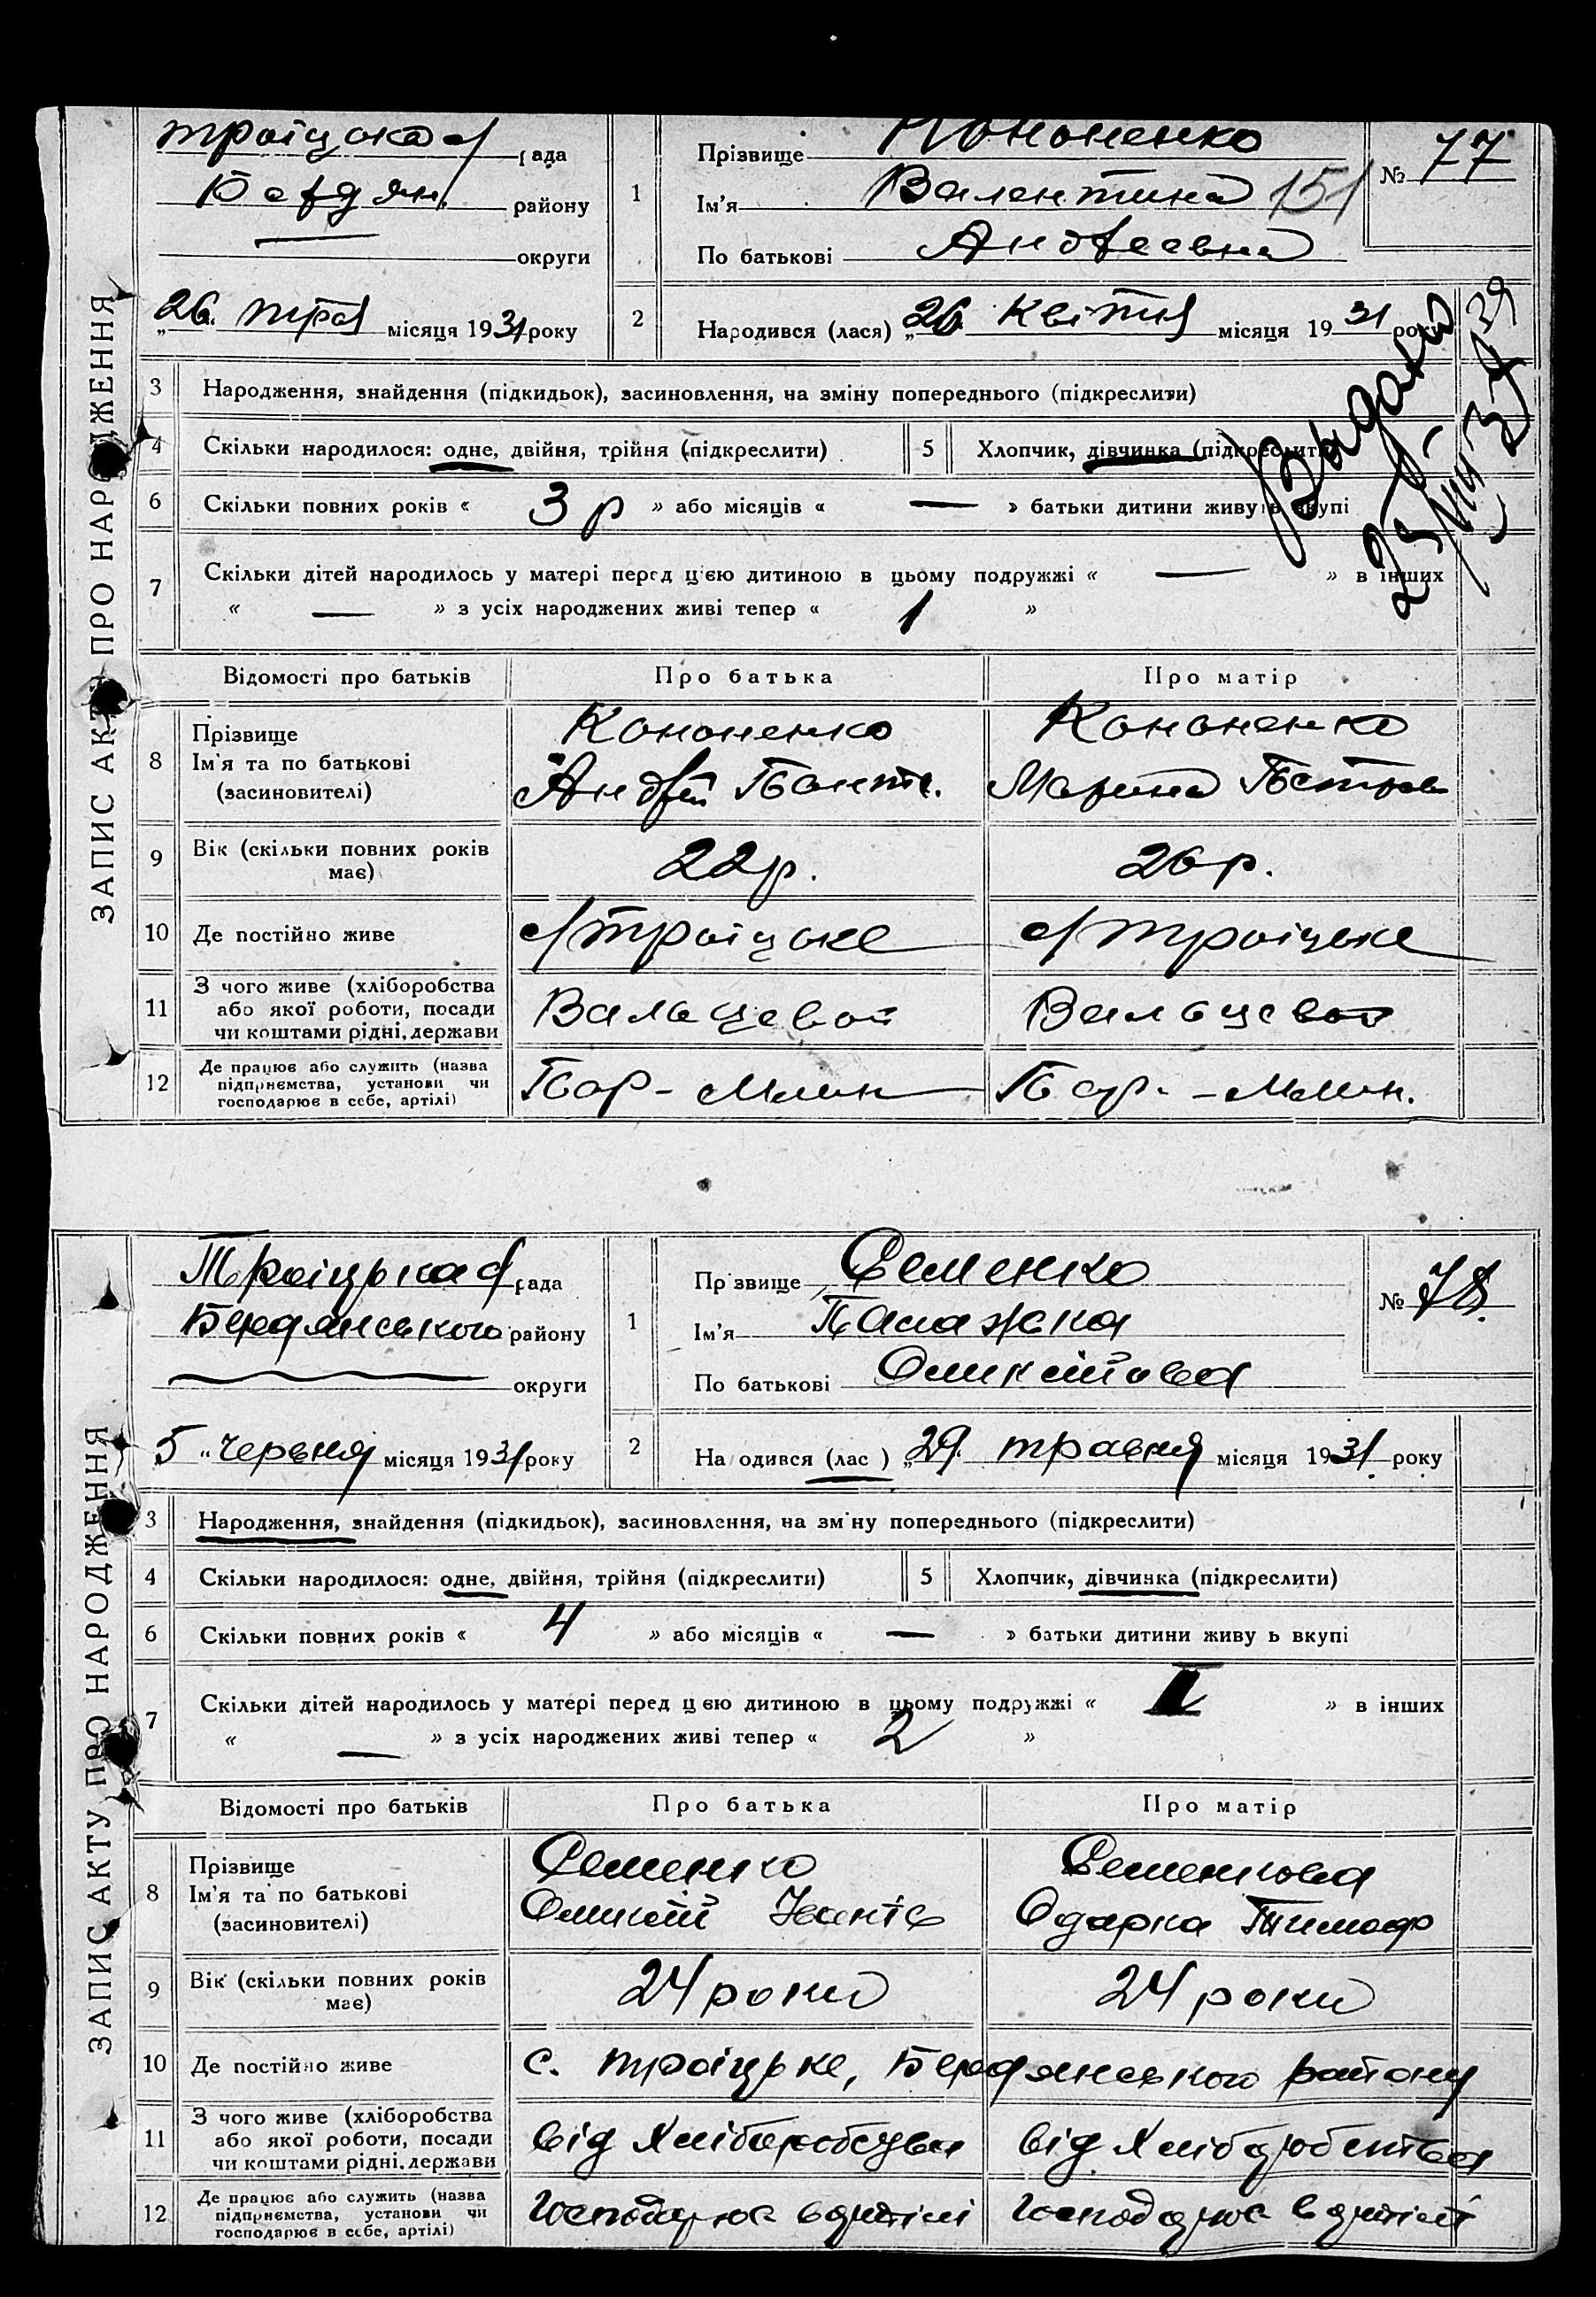 ЗАПИС АКТУ ПРО НАРОДЖЕННЯ
Троіцька с/рада
Бердян. району
округи
"26" трав місяця 1931 року
1
Прізвище Кононенко
Ім'я Валентина 151
По батькові Андреевна
№ 77
2
Народився (лася) "26" Квітня місяця 1931 року
3 Народження, знайдення (підкидьок), засиновлення, на зміну попереднього (підкреслити)
4 Скільки народилося: одне, двійня, трійня (підкреслити) 5 Хлопчик, дівчинка (підкреслити)
6 Скільки повних років « 3 р » або місяців « — » батьки дитини живуть вкупі
7 Скільки дітей народилось у матері перед цією дитиною в цьому подружжі « — » в інших
« — » з усіх народжених живі тепер « 1 »
Відомості про батьків Про батька Про матір
8 Прізвище
Ім'я та по батькові
(засиновителі)
Кононенко
Андрій
Кононенко
Марина Петров
9 Вік (скільки повних років
має)
22р.
26р.
10 Де постійно живе с/Троіцьке с/Троіцьке
11 З чого живе (хліборобства
або якої роботи, посади
чи коштами рідні, держави
Вальцевой
Вальцевой
12 Де працює або служить (назва
підприємства, установи чи
господарює в себе, артілі)
Пар-Млин
Пар.-Млин.
Выдано
ЗАПИС АКТУ ПРО НАРОДЖЕННЯ
Троіцька с/рада
Бердянського району
округи
5 "червня місяця 1931 року
1
Прізвище Семенко
Ім'я Палажка
По батькові Оникійова
№ 78.
2
Народився (лас ) "29" травня місяця 1931. року
3 Народження, знайдення (підкидьок), засиновлення, на зміну попереднього (підкреслити)
4 Скільки народилося: одне, двійня, трійня (підкреслити) 5 Хлопчик, дівчинка (підкреслити)
6 Скільки повних років « 4 » або місяців « — » батьки дитини живу ь вкупі
7 Скільки дітей народилось у матері перед цією дитиною в цьому подружжі « I » в інших
« — » з усіх народжених живі тепер « 2 »
Відомості про батьків Про батька Про матір
8 Прізвище
Ім'я та по батькові
(засиновителі)
Семенко
Оникій Іванів
Семенкова
Одарка Тимоф
9 Вік (скільки повних років
має)
24 роки
24 роки
10 Де постійно живе с. Троіцьке, Бердянського району
11 З чого живе (хліборобства
або якої роботи, посади
чи коштами рідні, держави
від Хліборобства
від Хліборобства
12 Де працює або служить (назва
підприємства, установи чи
господарює в себе, артілі)
Господарює в артілі
Господарює в артілі